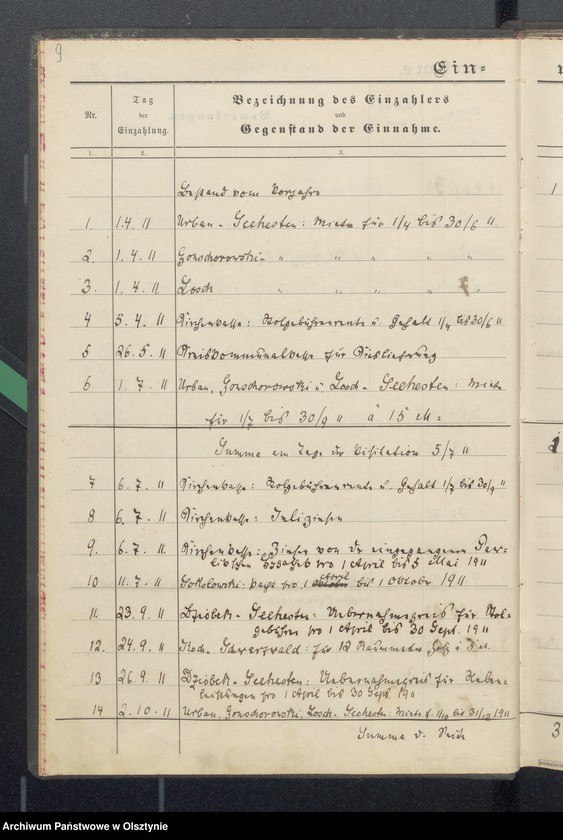 9
Ein=
Nr.
Tag
der
Einzahlung.
Bezeichnung des Einzahlers
und
Gegenstand der Einnahme.
1. 2. 3.
Bestand vom Vorjahre
1. 1.4. 11 Urban - Seehesten: Miete für 1/4 bis 30/6 11.
2. 1. 4. 11 Gonschorowski - " " " " "
3. 1. 4. 11 Losch " " " "
4 5. 4. 11 Kirchenkasse: Stolgebührenrente u. Gehalt 1/4 bis 30/6 11
5 26. 5. 11 Kreiskommunalkasse für
6. 1. 7. 11 Urban, Gonschorowski u. Losch - Seehesten: Miete
für 1/7 bis 30/9 11 à 15 M =
Summa am Tage der Visitation 5/7 11
7 6. 7. 11 Kirchenkasse: Stolgebührenrente u. Gehalt 1/7 bis 30/9 11
8 6. 7. 11 Kirchenkasse: Julizinsen
9. 6. 7. 11. Kirchenkasse: Zinsen von der eingegangenen
pro 1 April bis 5 Mai 1911
10 11. 7. 11 Sokolowski: Pacht pro 1 April bis 1 Oktober 1911
11. 23. 9. 11 Dziobek - Seehesten: Uebernahmepreis für Stol-
gebühren pro 1 April bis 30 Sept. 1911
12. 24. 9. 11 für 12 Raummeter Holz
13 26. 9. 11 Dziobek - Seehesten: Uebernahmepreis für Neben-
leistungen pro 1 April bis 30 Sept 1911
14 2. 10. 11 Urban, Gonschorowski, Losch - Seehesten: Miete f. 1/10 bis 31/12 1911
Summa d. Seite
1
1
3
Archiwum Państwowe w Olsztynie